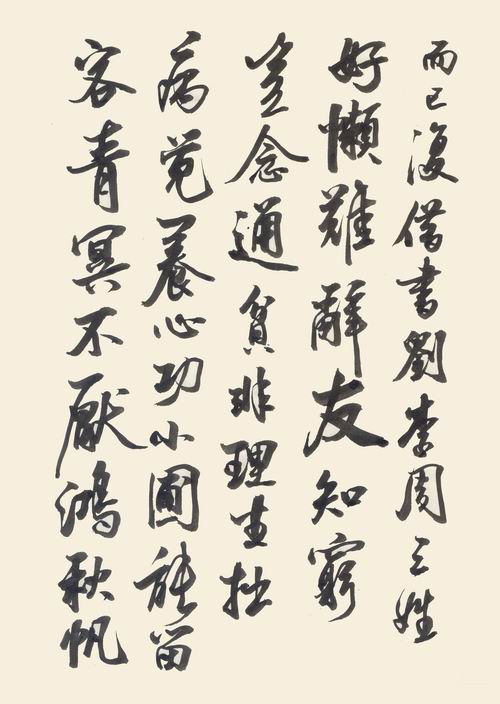 而已復借書劉李周三姓
好懶難辭友知窮
豈念通貧非理生拙
病覺養心功小圃能留
客青冥不厭鴻秋帆